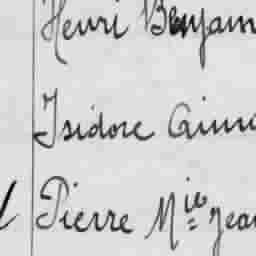 Henri Benjam
Isidore Aim
Pierre M^ie Jea